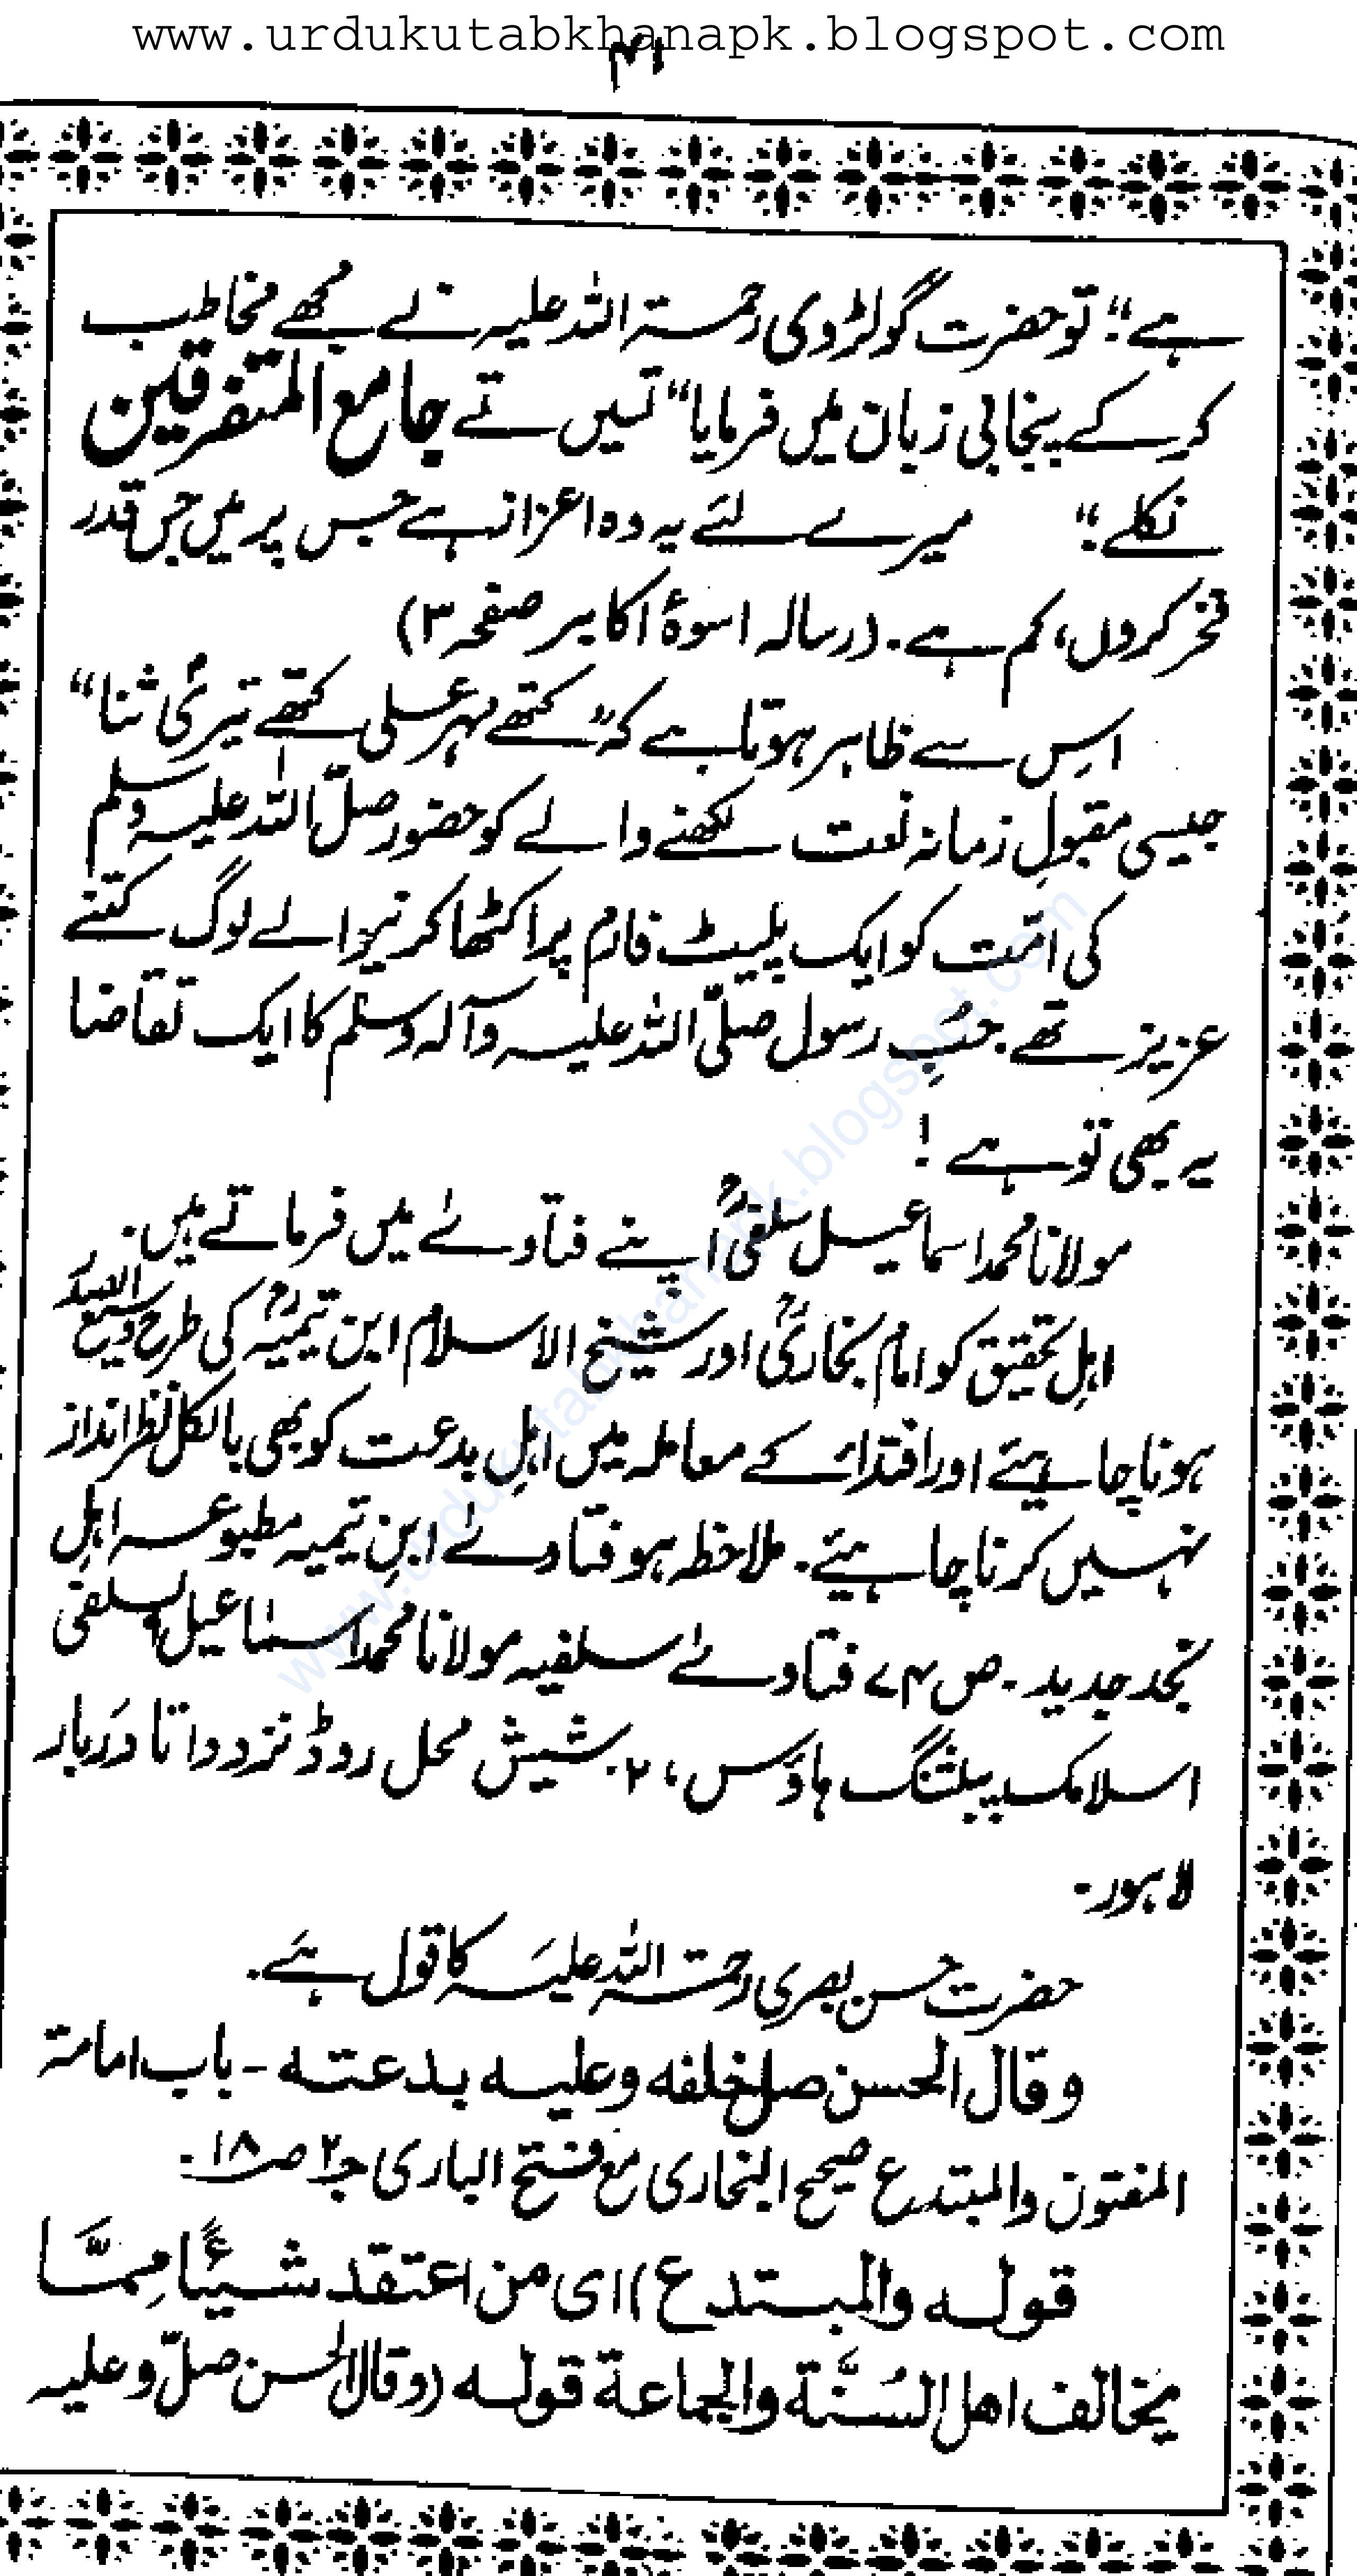 www.urdukutabkhanapk.blogspot.com
۴۱
ہے“؛ تو حضرت گولڑوی رحمۃ اللہ علیہ نے مجھے مخاطب
کر کے پنجابی زبان میں فرمایا ”تسیں تے جامع المتفرقین
نکلے“؛ میرے لئے یہ وہ اعزاز ہے جس پر میں جس قدر
فخر کروں، کم ہے۔ (رسالہ اسوۂ اکابر صفحہ ۳)
اس سے ظاہر ہوتا ہے کہ ”کتھے مہر علی کتھے تیری ثنا“
جیسی مقبولِ زمانہ نعت لکھنے والے کو حضور صلّ اللہ علیہ وسلم
کی امّت کو ایک پلیٹ فارم پر اکٹھا کرنیوالے لوگ کتنے
عزیز تھے۔ حُبِ رسول صلّی اللہ علیہ وآلہ وسلم کا ایک تقاضا
یہ بھی تو ہے !
مولانا محمد اسماعیل سلفیؒ اپنے فتاوےٰ میں فرماتے ہیں۔
اہلِ تحقیق کو امام بخاریؒ اور شیخ الاسلام ابن تیمیہؒ کی طرح وسیع
ہونا چاہیئے اور اقتداء کے معاملہ میں اہلِ بدعت کو بھی بالکل نظر انداز
نہیں کرنا چاہیئے۔ ملاحظہ ہو فتاوےٰ ابنِ تیمیہ مطبوعہ اہلِ
نجد جدید۔ ص ۷۴ فتاوےٰ سلفیہ مولانا محمد اسماعیل سلفی
اسلامک پبلشنگ ہاؤس، ۲۔ شیش محل روڈ نزد داتا دربار
لاہور۔
حضرت حسن بصری رحمتہ اللہ علیہ کا قول ہے۔
وقال الحسن صل خلفه وعليه بدعته - باب امامة
المفتون والمبتدع صحیح البخاری مع فتح الباری ج۲ ص۱۸۔
قوله والمبتدع) ای من اعتقد شيئًا مِمَّا
يخالف اهل السُنَّة والجماعة قوله (وقال الحسن صلّ وعليه
www.urdukutabkhanapk.blogspot.com